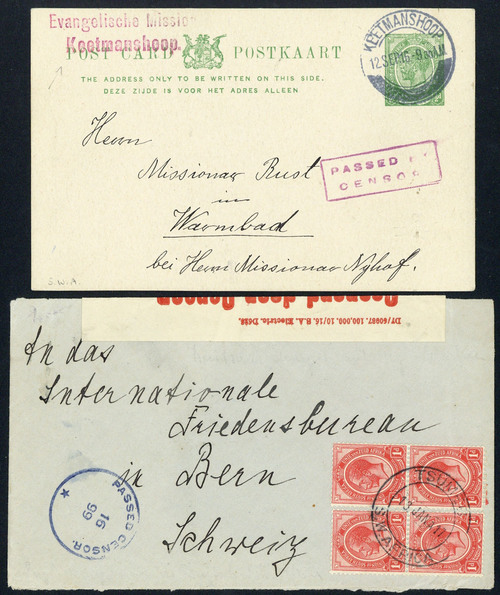 Evangelische Mission
Keetmanshoop.
POST CARD POSTKAART
THE ADDRESS ONLY TO BE WRITTEN ON THIS SIDE.
DEZE ZIJDE IS VOOR HET ADRES ALLEEN
KEETMANSHOOP
Herrn
Missionar Rust
in
Warmbad
bei Herrn Missionar Nyhof.
PASSED BY
CENSOR
S.W.A.
Geopend door Censor
DT/60987. 100,000. 10/16. H.A. Electric. D638.
An das
Internationale
Friedensbureau
in Bern
Schweiz
PASSED CENSOR.
16
99
TSUMEB
S.W.AFRICA